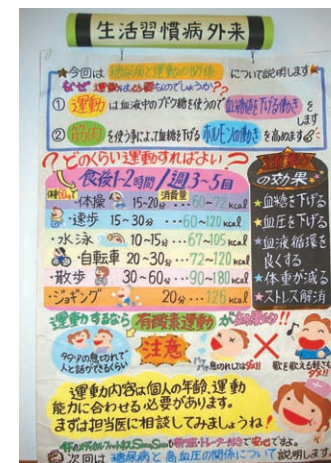 生活習慣病外来
★今回は 糖尿病と運動の関係 について説明します★
なぜ 運動は必要なのでしょうか??
① 運動 は血液中のブドウ糖を使うので血糖値を下げる働きをします
② 筋肉 を使う事によって血糖を下げるホルモンの働きを高めます
どのくらい運動すればよい?
食後1~2時間/週3~5回
消費量
・体操 15~20分…60~72kcal
・速歩 15~30分…60~120kcal
・水泳 10~15分…67~105kcal
・自転車 20~30分…72~120kcal
・散歩 30~60分…90~180kcal
・ジョギング 20分…126kcal
の効果
★血糖を下げる
★血圧を下げる
★血液循環を良くする
★体重が減る
★ストレス解消
運動するなら 有酸素運動 が!!
注意
タタタの息切れで人と話ができるくらい
息のきれはダメ!!
歌を歌える軽さもダメ!!
運動内容は個人の年齢、運動
能力に合わせる必要があります。
まずは担当医に相談してみましょうね!
次回は 糖尿病と高血圧の関係について説明します